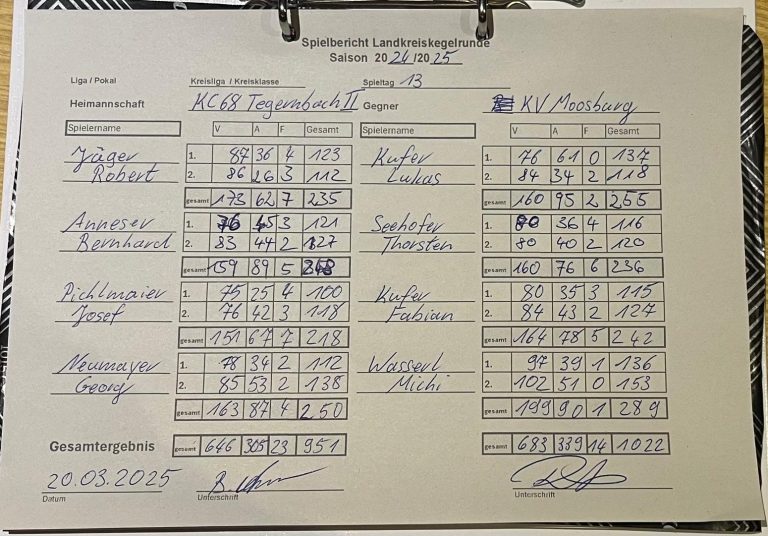 Spielbericht Landkreiskegelrunde
Saison 2024/2025
Liga / Pokal Kreisliga / Kreisklasse Spieltag 13
Heimannschaft KC68 Tegernbach II Gegner KV Moosburg
Spielername V A F Gesamt Spielername V A F Gesamt
Jäger 1. 87 36 4 123 Kufer 1. 76 61 0 137
Robert 2. 86 26 3 112 Lukas 2. 84 34 2 118
gesamt 173 62 7 235 gesamt 160 95 2 255
Anneser 1. 76 45 3 121 Seehofer 1. 80 36 4 116
Bernhard 2. 83 44 2 127 Thorsten 2. 80 40 2 120
gesamt 159 89 5 248 gesamt 160 76 6 236
Pichlmaier 1. 75 25 4 100 Kufer 1. 80 35 3 115
Josef 2. 76 42 3 118 Fabian 2. 84 43 2 127
gesamt 151 67 7 218 gesamt 164 78 5 242
Neumayer 1. 78 34 2 112 Wasserl 1. 97 39 1 136
Georg 2. 85 53 2 138 Michi 2. 102 51 0 153
gesamt 163 87 4 250 gesamt 199 90 1 289
Gesamtergebnis gesamt 646 305 23 951 gesamt 683 339 14 1022
20.03.2025
Datum Unterschrift Unterschrift